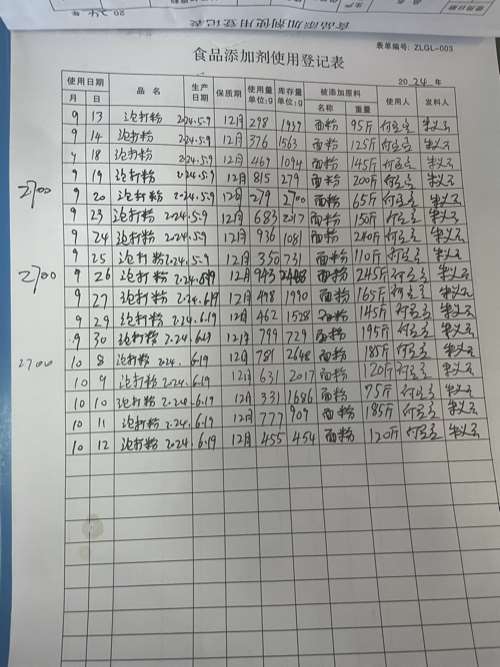 食品添加剂使用登记表
表单编号: ZLGL-003
食品添加剂使用登记表
2024年
使用日期 品名 生产日期 保质期 使用量单位:g 库存量单位:g 被添加原料 使用人 发料人
月 日 名称 重量
9 13 泡打粉 2024.5.9 12月 298 1939 面粉 95斤
9 14 泡打粉 2024.5.9 12月 376 1563 面粉 125斤
9 18 泡打粉 2024.5.9 12月 469 1094 面粉 145斤
9 19 泡打粉 2024.5.9 12月 815 279 面粉 200斤
2700 9 20 泡打粉 2024.5.9 12月 279 2700 面粉 65斤
9 23 泡打粉 2024.5.9 12月 683 2017 面粉 150斤
9 24 泡打粉 2024.5.9 12月 936 1081 面粉 240斤
9 25 泡打粉 2024.5.9 12月 350 731 面粉 110斤
2700 9 26 泡打粉 2024.6.19 12月 943 面粉 245斤
9 27 泡打粉 2024.6.19 12月 498 1990 面粉 165斤
9 29 泡打粉 2024.6.19 12月 462 1528 面粉 145斤
9 30 泡打粉 2024.6.19 12月 799 729 面粉 195斤
2700 10 8 泡打粉 2024.6.19 12月 781 2648 面粉 185斤
10 9 泡打粉 2024.6.19 12月 631 2017 面粉 120斤
10 10 泡打粉 2024.6.19 12月 331 1686 面粉 75斤
10 11 泡打粉 2024.6.19 12月 777 909 面粉 185斤
10 12 泡打粉 2024.6.19 12月 455 454 面粉 120斤